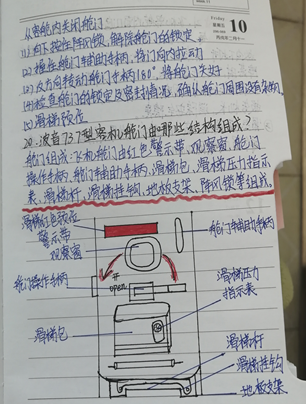 Friday
10
从客舱内关闭舱门
(1) 向下按住阵风锁,解除舱门的锁定
(2) 握住舱门辅助手柄,将门向内拉动
(3) 反方向转动舱门手柄180°,将舱门关好
(4) 检查舱门的锁定及密封情况,确认舱门周围没有夹物。
(5) 滑梯预位
20. 波音737型客机舱门由哪些结构组成?
舱门组成:飞机舱门由红色警示带、观察窗、舱门
操作手柄、舱门辅助手柄、滑梯包、滑梯压力指示
表、滑梯杆、滑梯挂钩、地板支架、阵风锁等组成。
滑梯红色预位
警示带
观察窗
舱门辅助手柄
舱门操作手柄
open
滑梯压力
指示表
滑梯包
滑梯杆
滑梯挂钩
地板支架